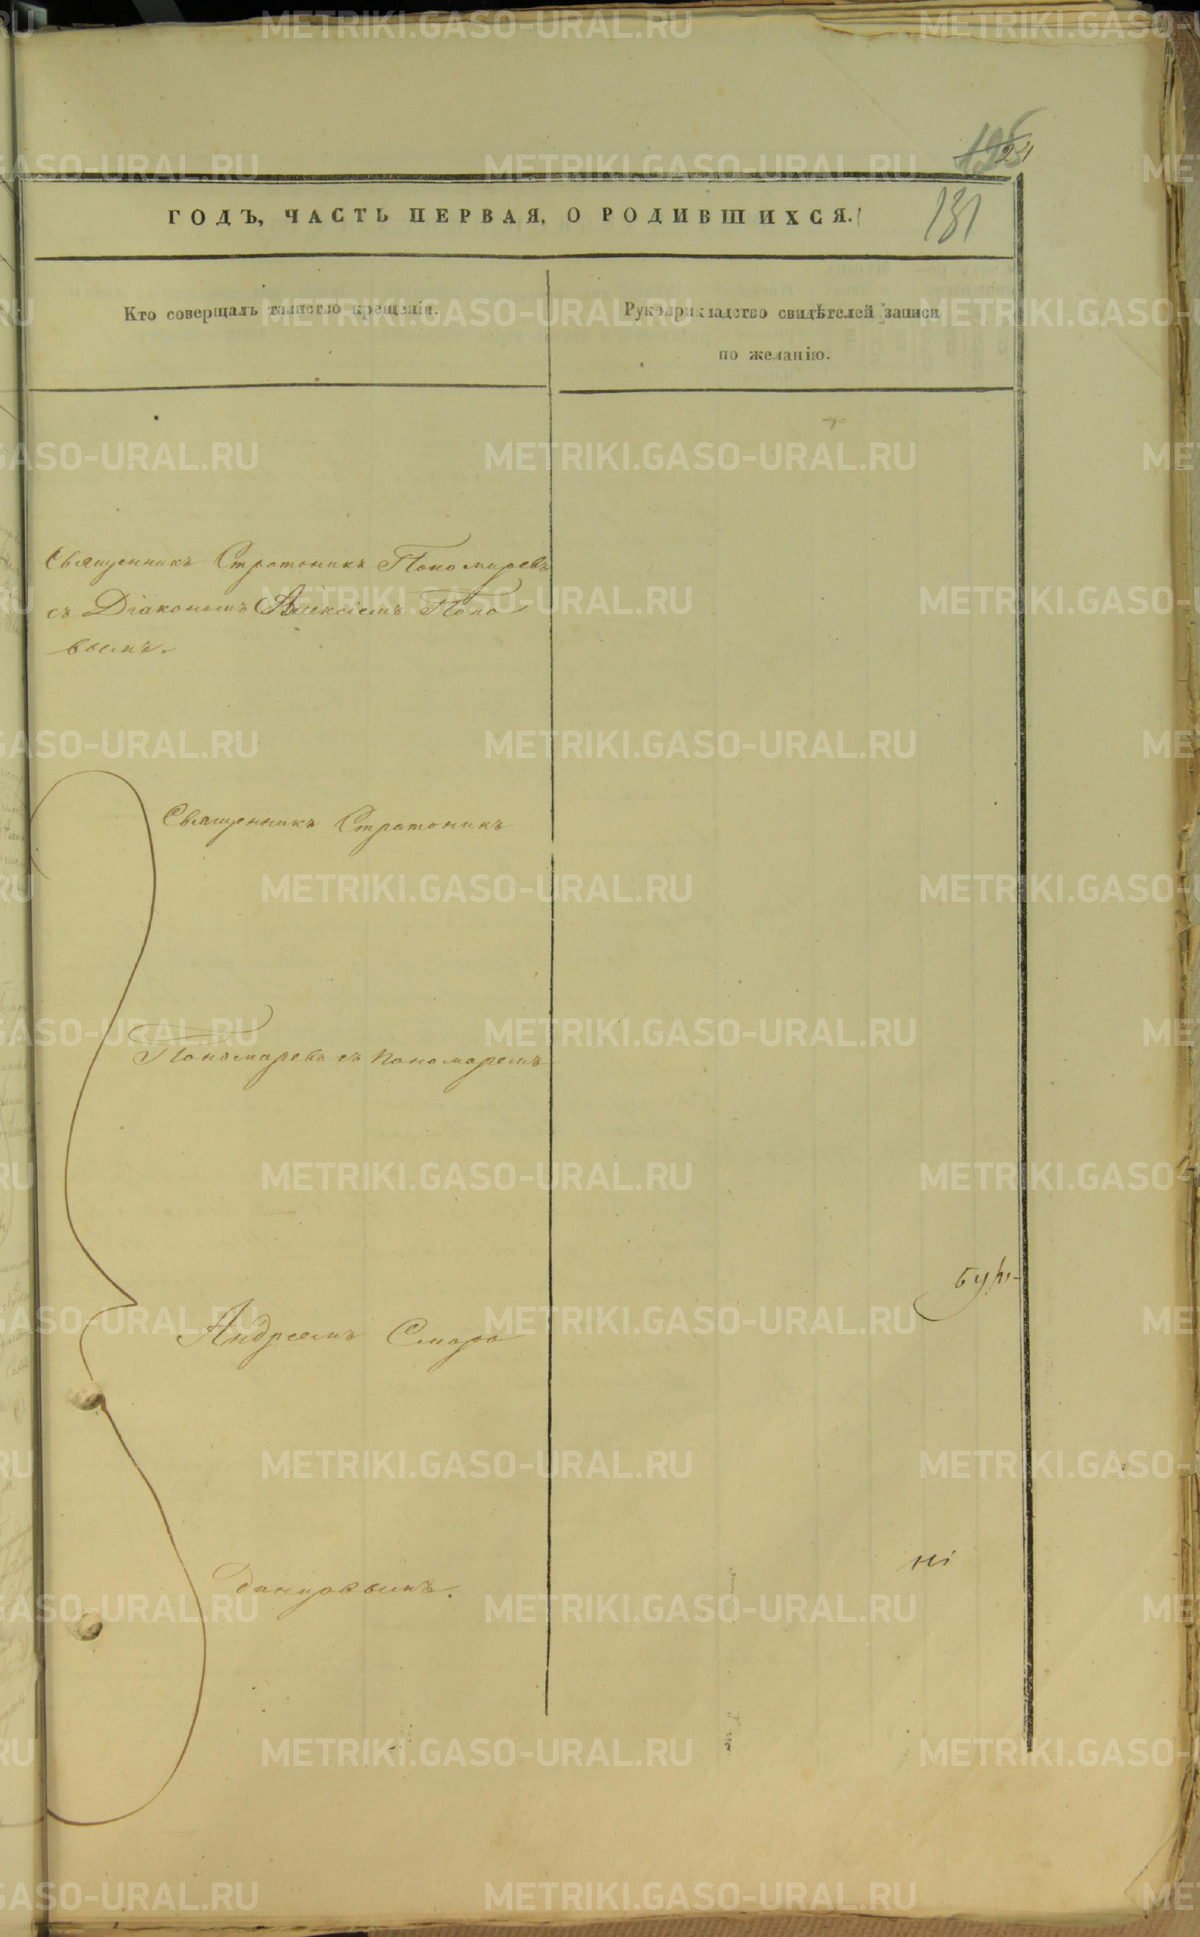 131
ГОДЪ, ЧАСТЬ ПЕРВАЯ, О РОДИВШИХСЯ.
Кто совершалъ таинство крещенія.
Рукоприкладство свидѣтелей записи
по желанію.
Священникъ Стратоникъ Пономаревъ
съ Діакономъ Алексіемъ Попо
вымъ.
Священникъ Стратоникъ
Пономаревъ съ пономаремъ
Андреемъ Смаро
данцовымъ.
METRIKI.GASO-URAL.RU